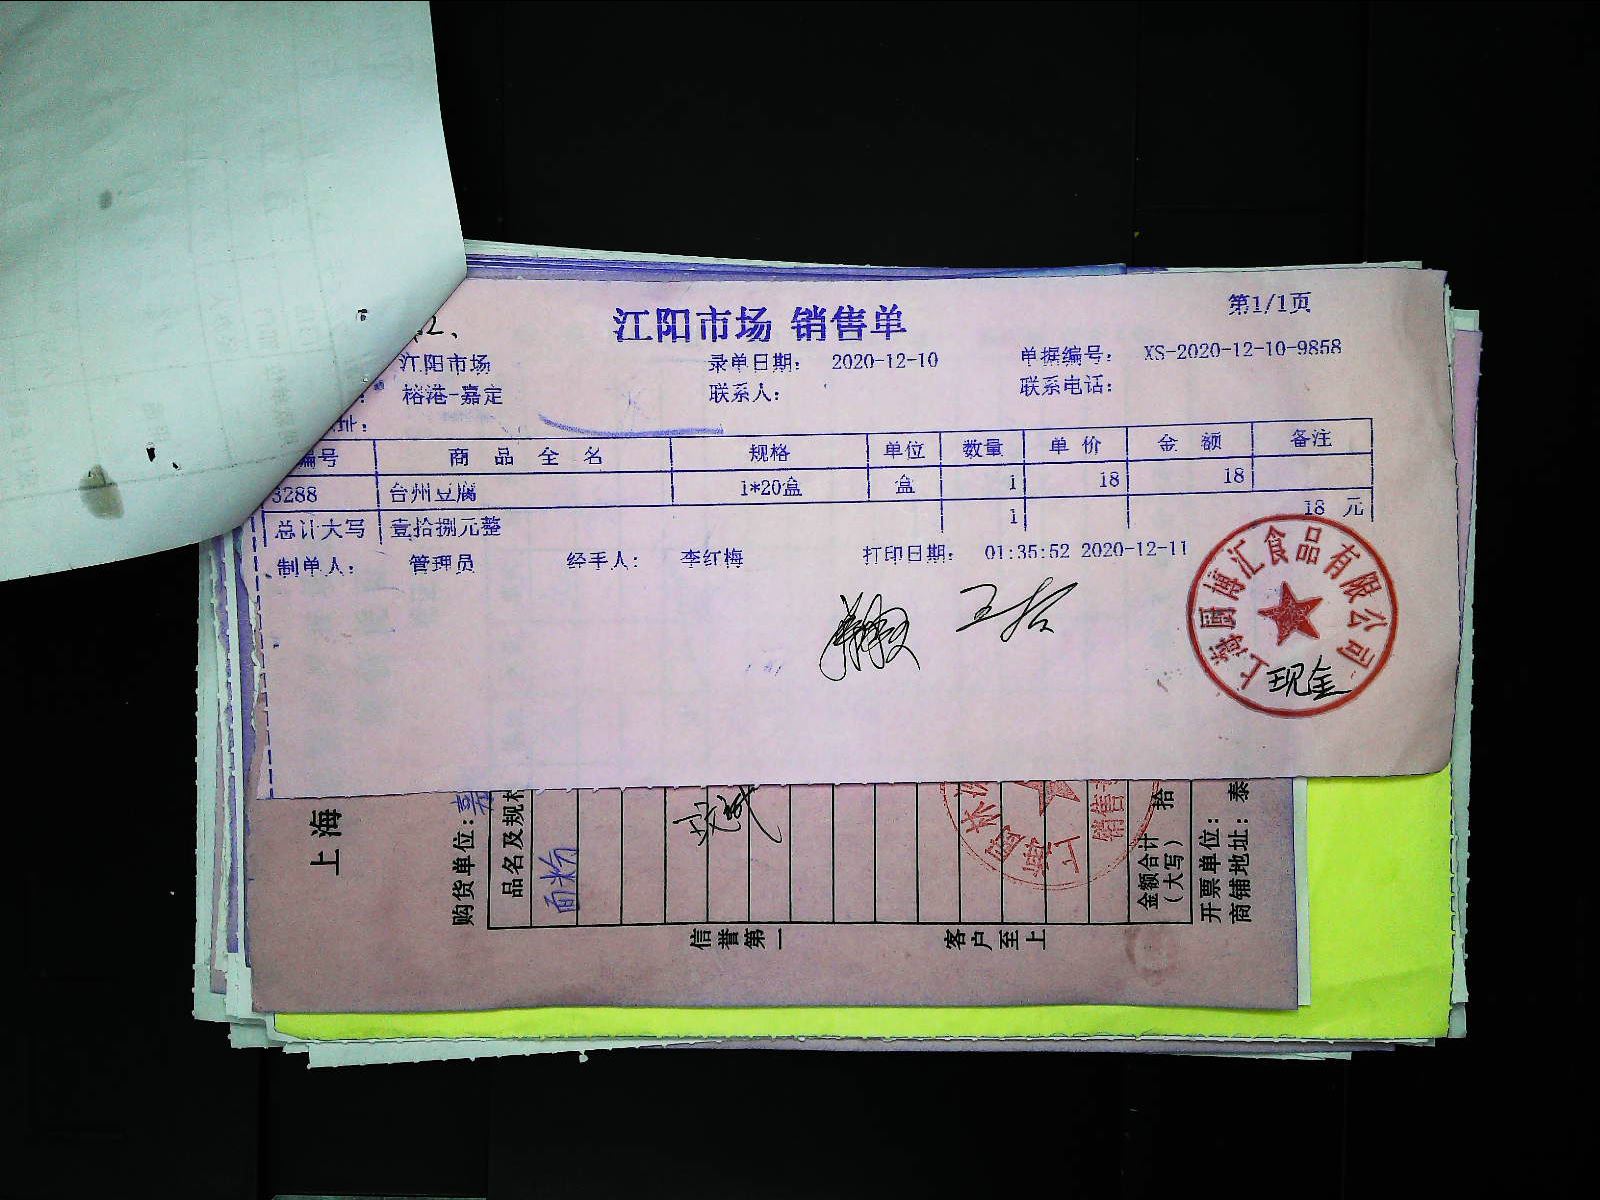 江阳市场 销售单
第1/1页
江阳市场 录单日期： 2020-12-10 单据编号： XS-2020-12-10-9858
榕港-嘉定 联系人： 联系电话：
址：
编号 商品全名 规格 单位 数量 单价 金额 备注
3288 台州豆腐 1*20盒 盒 1 18 18
总计大写 壹拾捌元整 1 18 元
制单人： 管理员 经手人： 李红梅 打印日期： 01:35:52 2020-12-11
上海厨博汇食品有限公司
现金
上海
购货单位：
品名及规格
面粉
信誉第一
客户至上
销售
金额合计
（大写）
拾
开票单位：
商铺地址： 泰